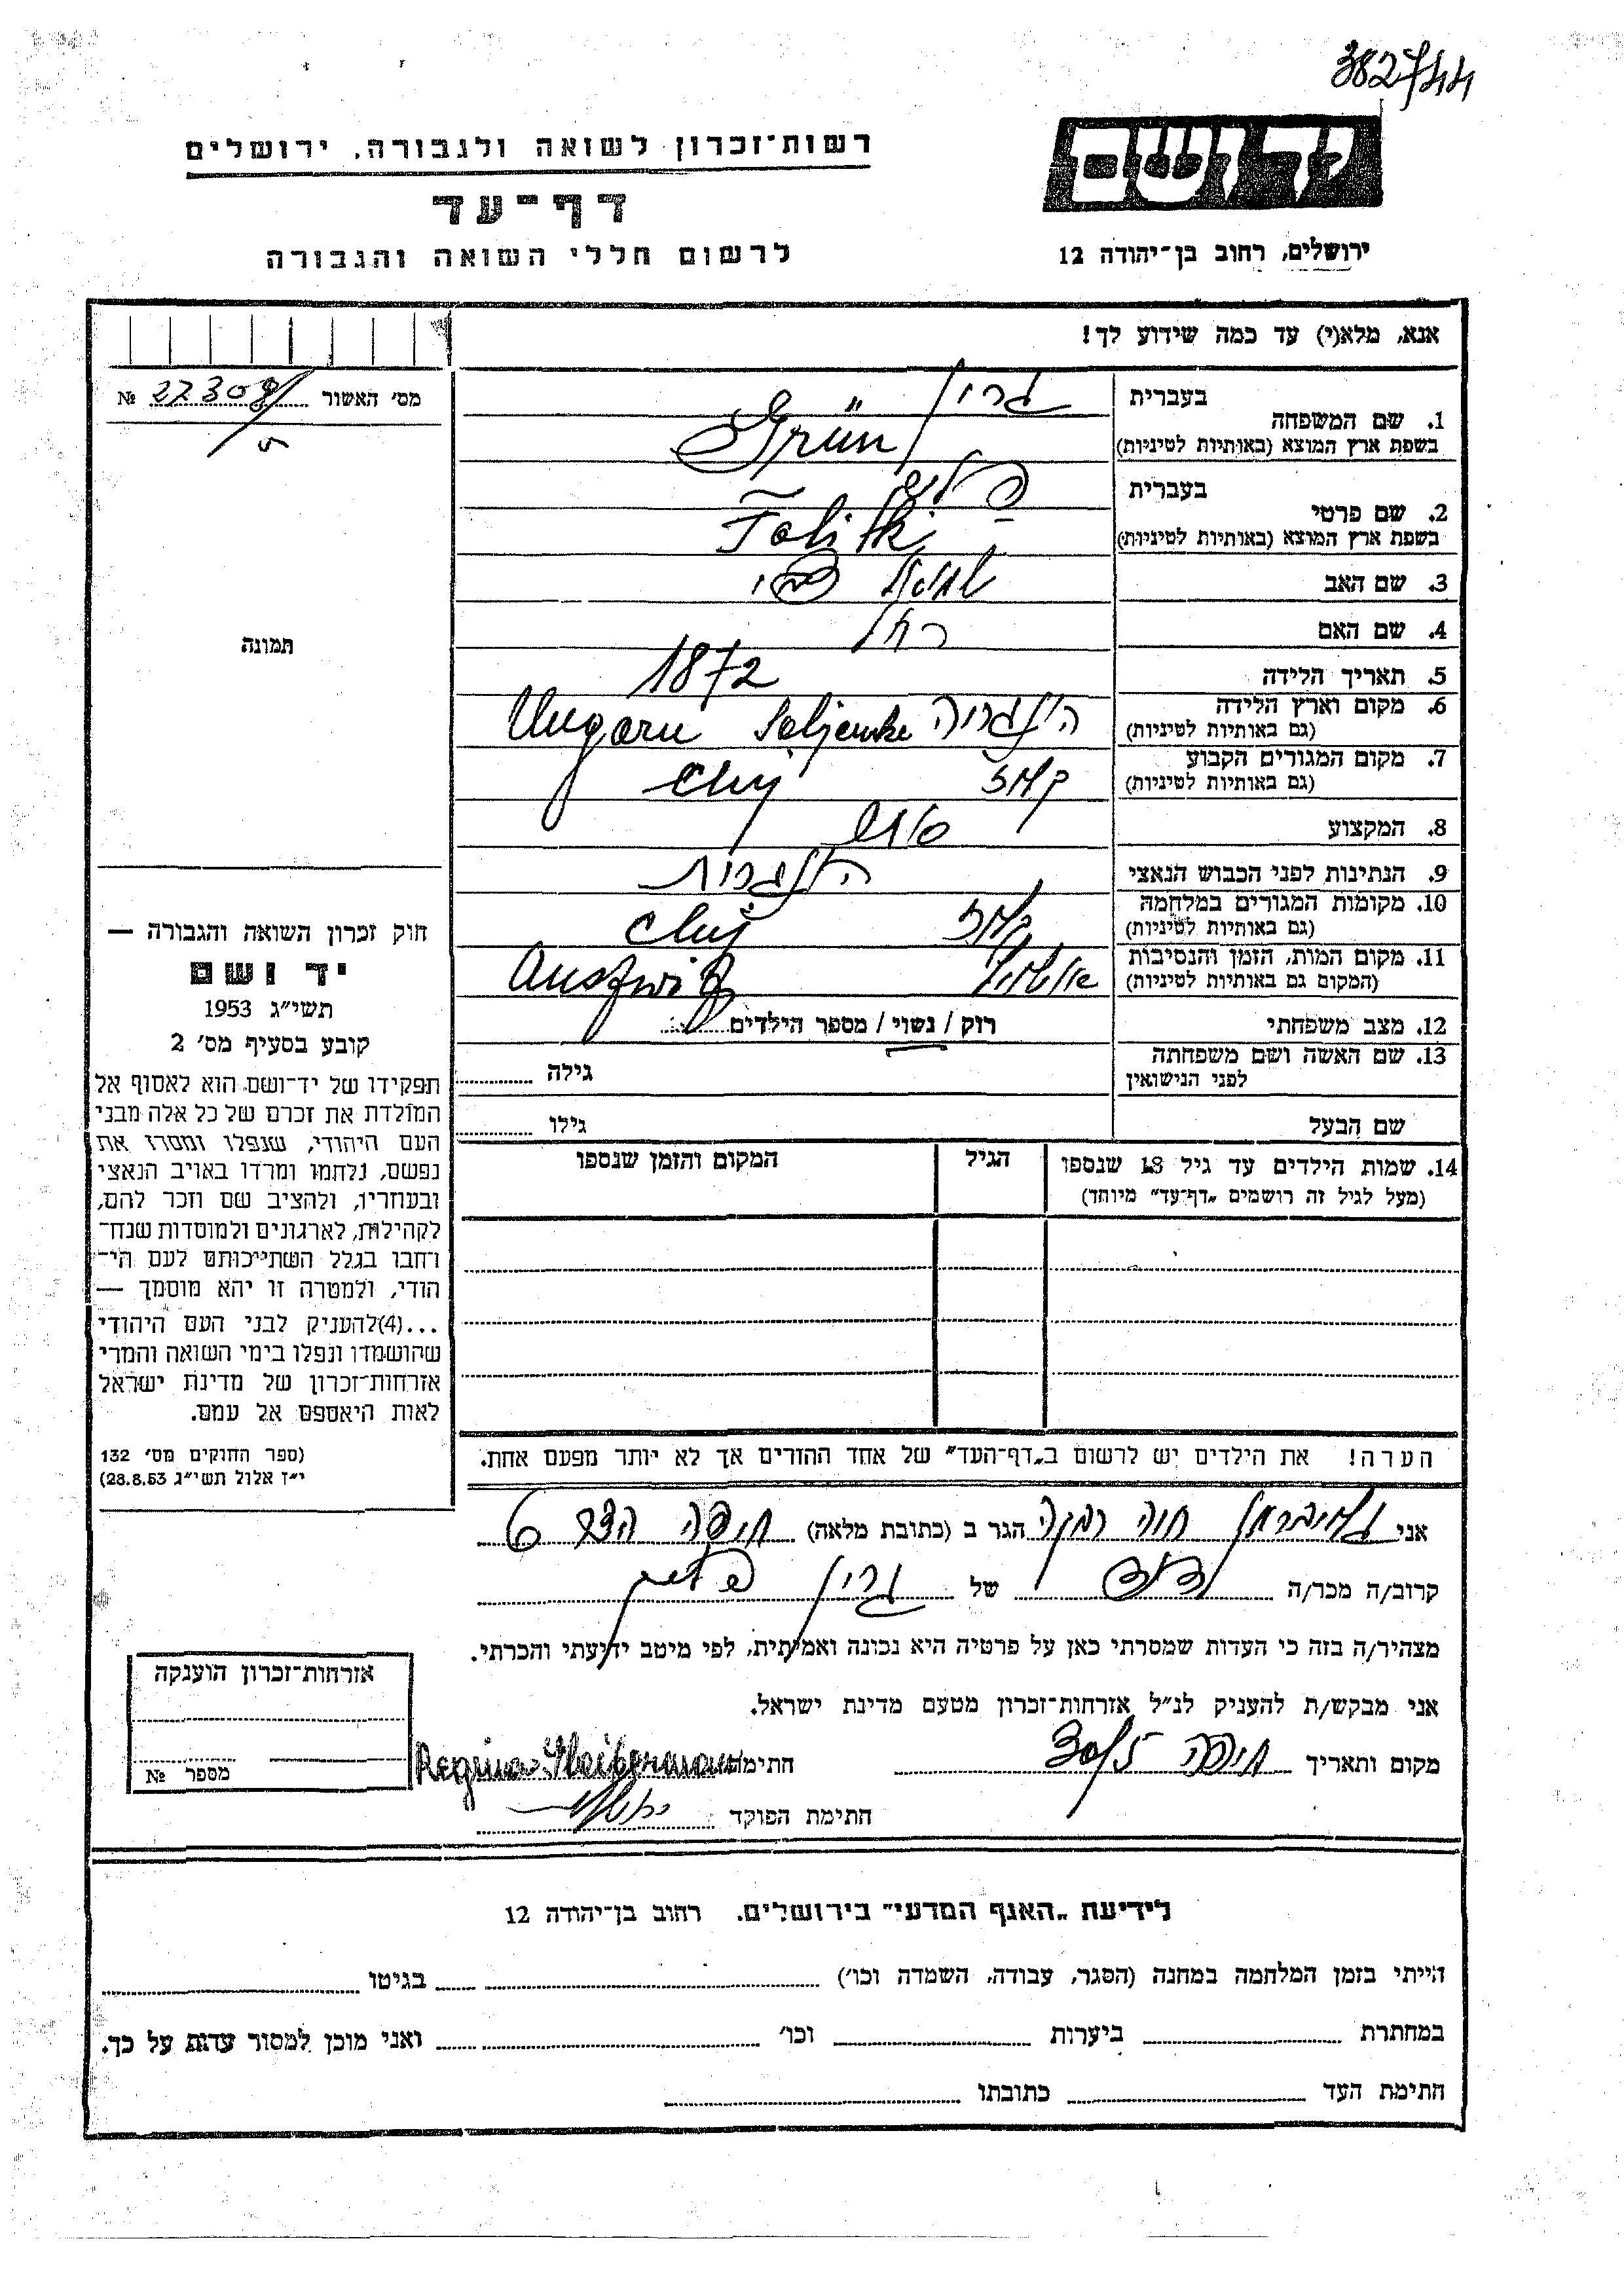 382744
יד ושם
רשות־זכרון לשואה ולגבורה. ירושלים
דף־עד
לרשום חללי השואה והגבורה
ירושלים, רחוב בן־יהודה 12
אנא, מלא(י) עד כמה שידוע לך!
מס׳ האשור № 22308/
5
תמונה
1. שם המשפחה
בעברית גרין
בשפת ארץ המוצא (באותיות לטיניות) Grün
2. שם פרטי
בעברית
בשפת ארץ המוצא (באותיות לטיניות)
3. שם האב שמואל צבי
4. שם האם רחל
5. תאריך הלידה 1872
6. מקום וארץ הלידה הונגריה Ungarn
(גם באותיות לטיניות)
7. מקום המגורים הקבוע קלוז׳ Cluj
(גם באותיות לטיניות)
8. המקצוע סוחר
9. הנתינות לפני הכבוש הנאצי הונגרית
10. מקומות המגורים במלחמה קלוז׳ Cluj
(גם באותיות לטיניות)
11. מקום המות, הזמן והנסיבות אושוויץ Auszwitz
(המקום גם באותיות לטיניות)
12. מצב משפחתי רוק / נשוי / מספר הילדים
13. שם האשה ושם משפחתה גילה
לפני הנישואין
שם הבעל גילו
14. שמות הילדים עד גיל 18 שנספו הגיל המקום והזמן שנספו
(מעל לגיל זה רושמים „דף־עד״ מיוחד)
חוק זכרון השואה והגבורה —
יד ושם
תשי״ג 1953
קובע בסעיף מס׳ 2
תפקידו של יד־ושם הוא לאסוף אל
המולדת את זכרם של כל אלה מבני
העם היהודי, שנפלו ומסרו את
נפשם, נלחמו ומרדו באויב הנאצי
ובעוזריו, ולהציב שם וזכר להם,
לקהילות, לארגונים ולמוסדות שנח־
רחבו בגלל השתייכותם לעם הי־
הודי, ולמטרה זו יהא מוסמך —
...(4)להעניק לבני העם היהודי
שהושמדו ונפלו בימי השואה והמרי
אזרחות־זכרון של מדינת ישראל
לאות היאספם אל עמם.
(ספר החוקים מס׳ 132
י״ז אלול תשי״ג 28.8.53)
הערה! את הילדים יש לרשום ב„דף־העד״ של אחד ההורים אך לא יותר מפעם אחת.
אני חוה רבקה הגר ב (כתובת מלאה) חיפה
קרוב/ה מכר/ה של גרין
מצהיר/ה בזה כי העדות שמסרתי כאן על פרטיה היא נכונה ואמיתית, לפי מיטב ידיעתי והכרתי.
אני מבקש/ת להעניק לנ״ל אזרחות־זכרון מטעם מדינת ישראל.
מקום ותאריך חיפה חתימה Regina
חתימת הפוקד
אזרחות־זכרון הוענקה
מספר №
לידיעת „האגף המדעי״ בירושלים. רחוב בן־יהודה 12
הייתי בזמן המלחמה במחנה (הסגר, עבודה, השמדה וכו׳) בגיטו
במחתרת ביערות וכו׳ ואני מוכן למסור עדות על כך.
חתימת העד כתובתו